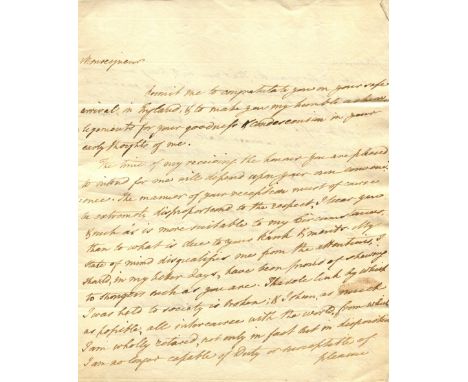 Monseigneur
Permit me to congratulate you on your safe
arrival in England, & to make you my humble acknow
legements for your goodness & condescention in your
early thoughts of me.
The time of my receiving the honour you are pleased
to intend for me will depend upon your own conveni
ence. The manner of your reception must of course
be extremely disproportiond to the respect, I bear you
& such as is more suitable to my Circumstances,
than to what is due to your Rank & merit. My
state of mind disqualifies me from the attentions, I
should, in my better days, have been proud of shewing
to strangers such as you are. The sole link by which
I was held to society is broken; & I shun, as much
as possible, all intercourse with the world, from which
I am wholly retired, not only in fact but in disposition
I am no longer capable of Duty or susceptible of
pleasure